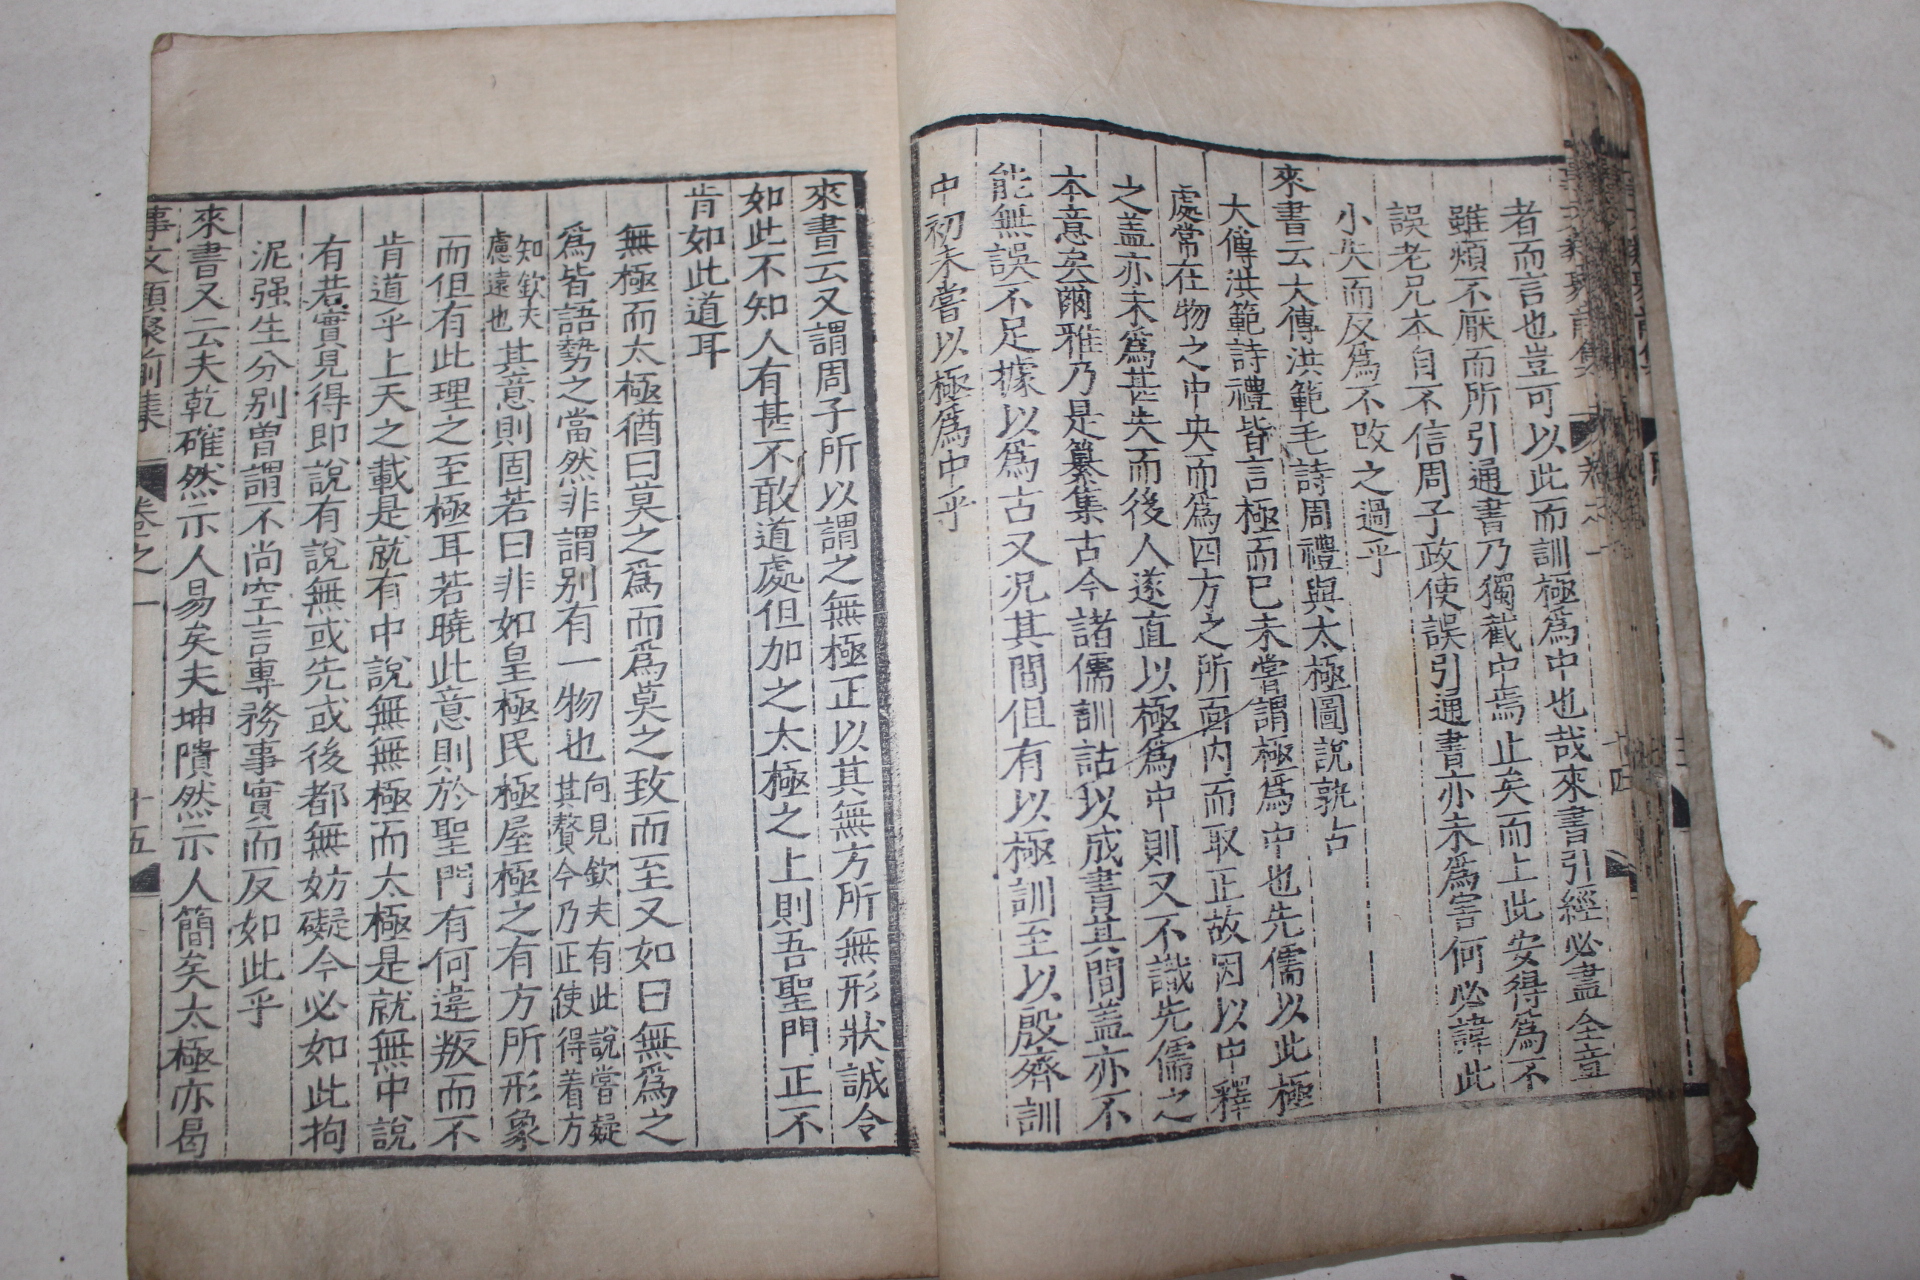 者而言也豈可以此而訓極爲中也哉來書引經必盡全章
雖煩不厭而所引通書乃獨截中焉止矣而上此安得爲不
誤老兄本自不信周子政使誤引通書亦未爲害何必諱此
小失而反爲不改之過乎
來書云大傳洪範毛詩周禮與太極圖說孰古
大傳洪範詩禮皆言極而已未嘗謂極爲中也先儒以此極
處常在物之中央而爲四方之所面内而取正故因以中釋
之盖亦未爲甚失而後人遂直以極爲中則又不識先儒之
本意矣爾雅乃是纂集古今諸儒訓詁以成書其間盖亦不
能無誤不足據以爲古又况其間但有以極訓至以殷齊訓
中初未嘗以極爲中乎
來書云又謂周子所以謂之無極正以其無方所無形狀誠令
如此不知人有甚不敢道處但加之太極之上則吾聖門正不
肯如此道耳
無極而太極猶曰莫之爲而爲莫之致而至又如曰無爲之
爲皆語勢之當然非謂别有一物也向見欽夫有此說嘗疑其贅今乃正使得着方
知欽夫慮遠也其意則固若曰非如皇極民極屋極之有方所形象
而但有此理之至極耳若曉此意則於聖門有何違叛而不
肯道乎上天之載是就有中說無無極而太極是就無中說
有若實見得即說有說無或先或後都無妨礙今必如此拘
泥强生分别曾謂不尚空言專務事實而反如此乎
來書又云夫乾確然示人易矣夫坤隤然示人簡矣太極亦曷
事文類聚前集 卷之一 十五